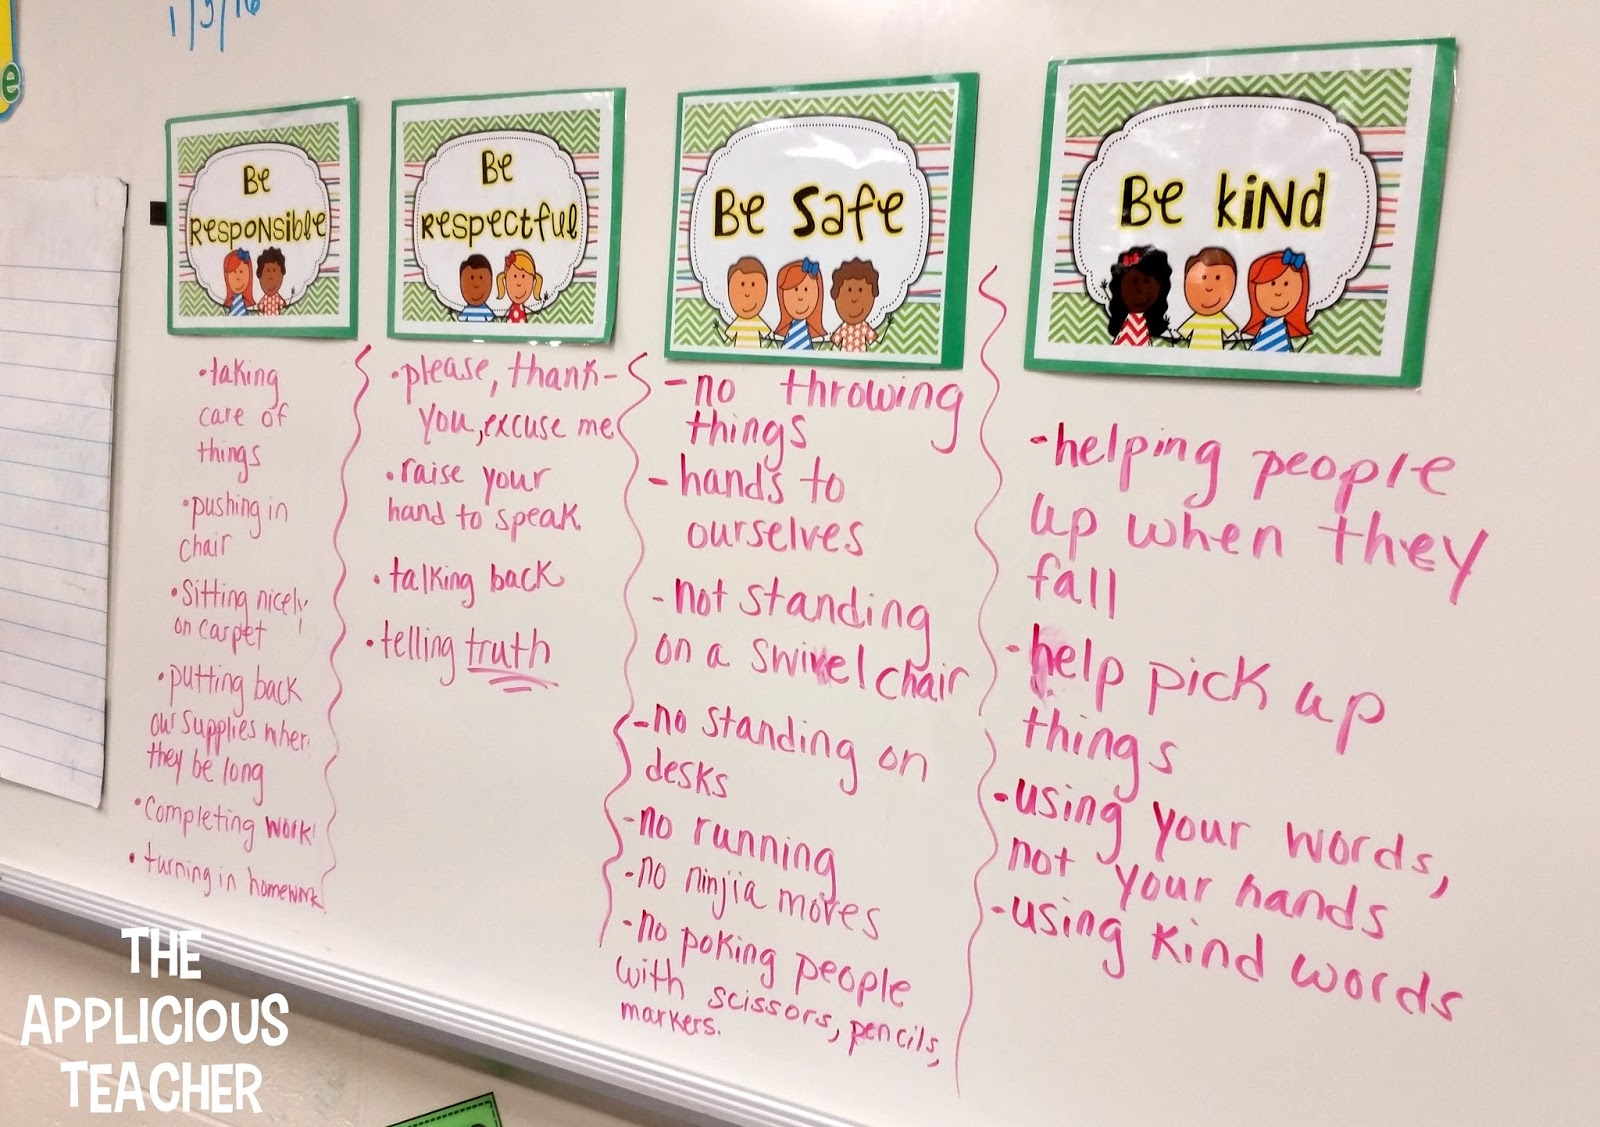 1/5/16
e
Be
Responsible
•taking
care of
things
•pushing in
chair
•Sitting nicely
on carpet
•putting back
our supplies wher
they be long
•Completing work
•turning in homework
Be
Respectful
•please, thank-
you, excuse me
•raise your
hand to speak
•talking back
•telling truth
Be Safe
-no throwing
things
-hands to
ourselves
-not standing
on a swivel chair
-no standing on
desks
-no running
-no ninjia moves
-no poking people
with scissors, pencils,
markers.
Be Kind
-helping people
up when they
fall
-help pick up
things
-using your words,
not your hands
-using kind words
THE
APPLICIOUS
TEACHER